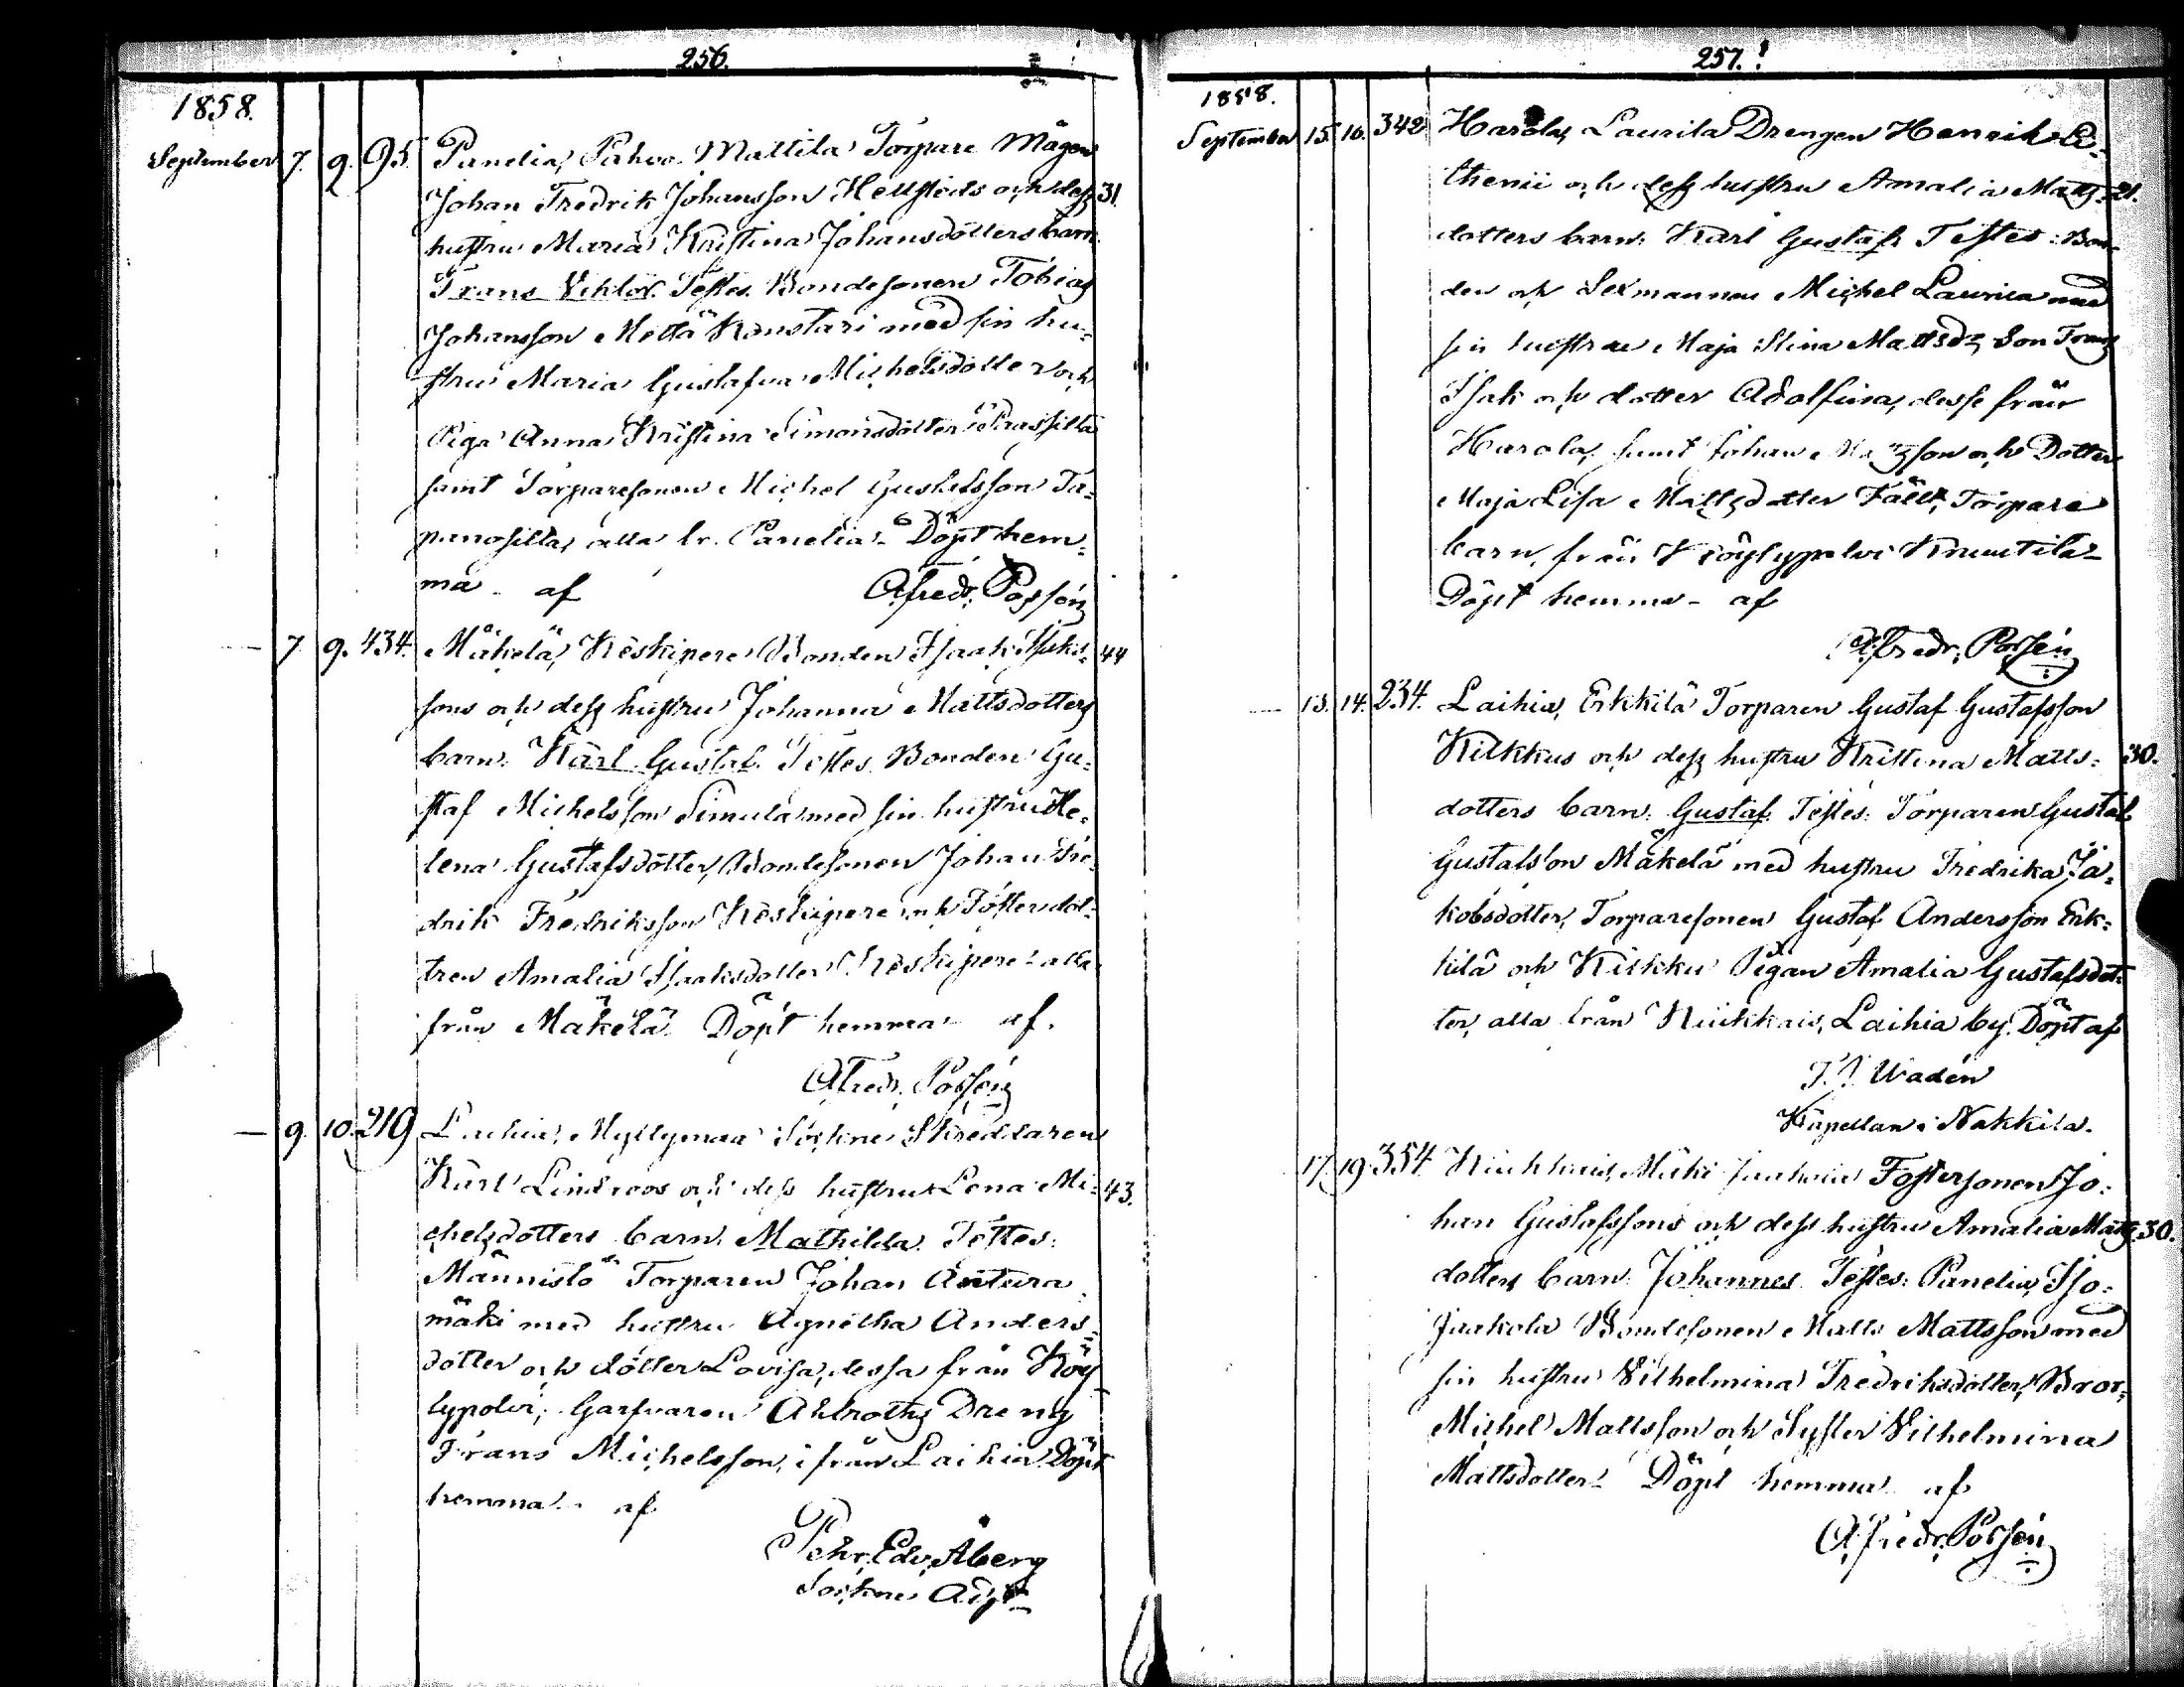 256.
1858.
September 7. 9. 95. Panelia, Pahvo Mattila Torpare Mågen
Johan Fredrik Johansson Hellsteds och dess 31.
hustru Maria Kristina Johansdotters barn
Frans Viktor. Testes. Bondesonen Tobias
Johansson Mettä Konstari med sin hu-
stru Maria Gustafva Michelsdotter och
Piga Anna Kristina Simonsdotter
samt Torparesonen Michel Gustafsson Ta-
panosilta, alla fr. Panelia. Döpt hem-
ma af Alfred. Possén
7 9. 434. Mäkelä, Keskipere Bonden Isaak Isaks- 44
sons och dess hustru Johanna Mattsdotters
barn. Karl Gustaf. Testes Bonden Gu-
staf Michelsson Simula med sin hustru He-
lena Gustafsdotter, Bondesonen Johan Fre-
drik Fredriksson Keskipere och Fosterdot-
tren Amalia Isaaksdotter Keskipere alla
från Mäkelä. Döpt hemma af.
Alfred. Possén
9. 10. 219 Laihia, Myllymaa Sockne Skreddaren
Karl Lindroos och dess hustru Lena Mi- 43.
chelsdotters barn. Mathilda. Testes:
Männistö Torparen Johan Antura
mäki med hustru Agnetha Anders-
dotter och dotter Lovisa, dessa från Köy
lypolvi, Garfvaren Ahlroths Dreng
Frans Michelsson, ifrån Laihia. Döpt
hemma af
Pehr. Edv. Åberg
Sockne Adj.
257.
1858.
September 15. 16. 342 Harola, Laurila Drengen Henrik
thenii och dess hustru Amalia Matts- 21.
dotters barn: Karl Gustaf. Testes: Bon-
den och Sexmannen Michel Laurila med
sin hustru Maja Stina Mattsd., Son Frans
Isak och dotter Adolfina, desse från
Harola, samt Johan Mattsson och Dotter
Maja Lisa Mattsdotter Fält, Torpare
barn, från Köylypolvi Knuutila
Döpt hemma af
Alfredr. Possén
13. 14. 234. Laihia, Erkkilä Torparen Gustaf Gustafsson
Kilkkus och dess hustru Kristina Matts- 30.
dotters barn: Gustaf. Testes: Torparen Gustaf
Gustafsson Mäkelä med hustru Fredrika Ja-
kobsdotter, Torparesonen Gustaf Andersson Erk-
kilä och Kilkku Pigan Amalia Gustafsdot-
ter, alla från Kiukkais, Laihia by. Döpt af
Wadén
Kapellan i Nakkila.
17. 19. 354. Kiukkais, Mäki Jaakola Fostersonen Jo-
han Gustafssons och dess hustru Amalia Matts- 30.
dotters barn: Johannes. Testes: Panelia, Iso-
Jaakola Bondesonen Matts Mattsson med
sin hustru Vilhelmina Fredriksdotter, Bror
Michel Mattsson och Syster Vilhelmina
Mattsdotter. Döpt hemma af
Alfredr. Possén